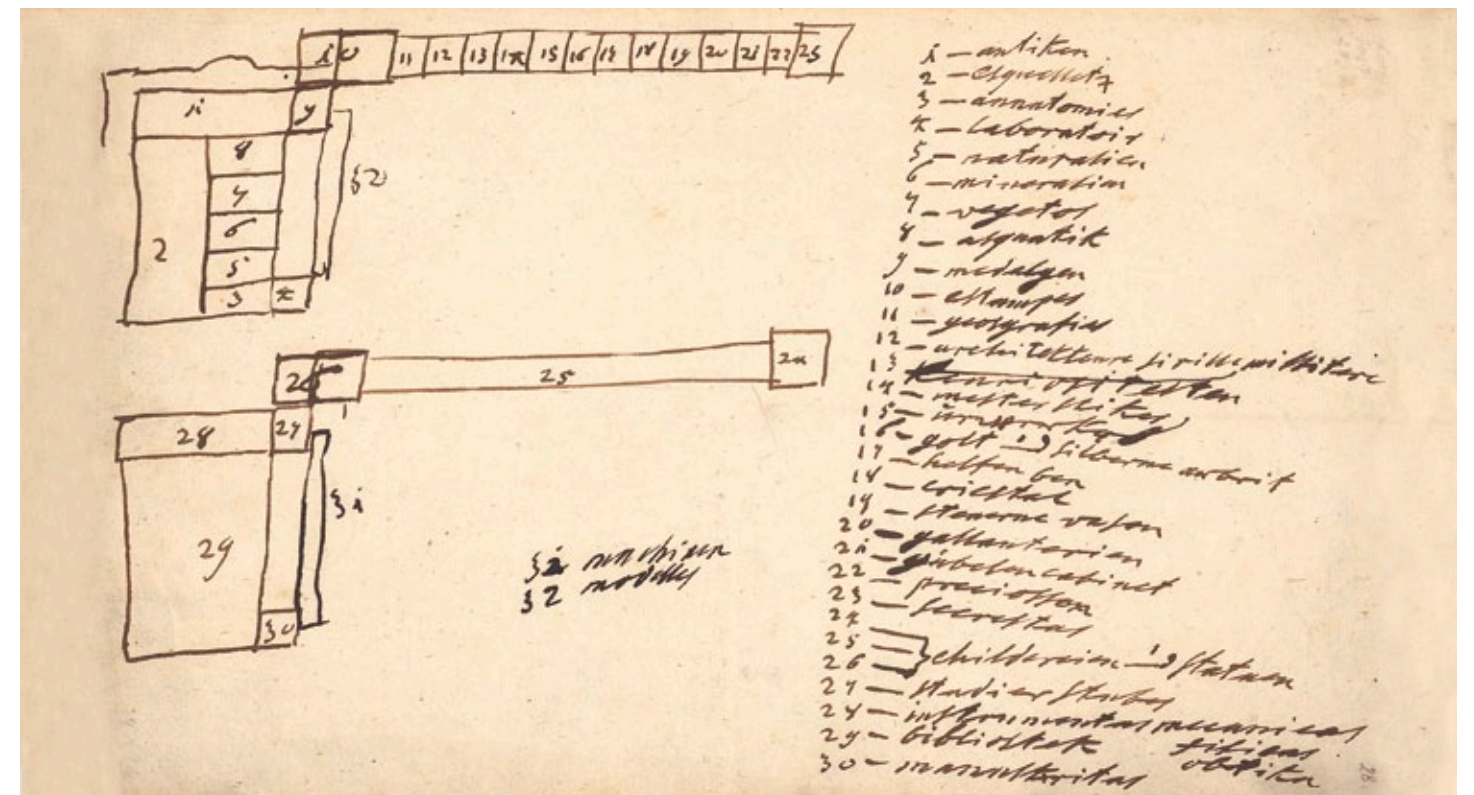 i 0 11 12 13 14 15 16 17 18 19 20 21 22 23
i 9
8
7
6
2 5
3 4
32
26 25 24
28 27
29
31
30
31 machinen
32 modelles
1 — antiken
2 — esquelletz
3 — annatomies
4 — laboratoir
5 — naturalien
6 — mineralien
7 — vegetos
8 — aiquatik
9 — medalgen
10 — estampes
11 — geografies
12 — architekteure siville millitere
13 kenriositetten
14 — mesterstikes
15 —
16 — golt und silberne arbeit
17 — helfen ben
18 — cristal
19 — stenerne vasen
20 — gallanterien
21 — cabinet
22 — preciossen
23 — secrettas
24
25 schildereien und statuen
26
27 — studier stube
28 — instrumentas mecanicas
29 — bibliottek
30 — manuskeritas